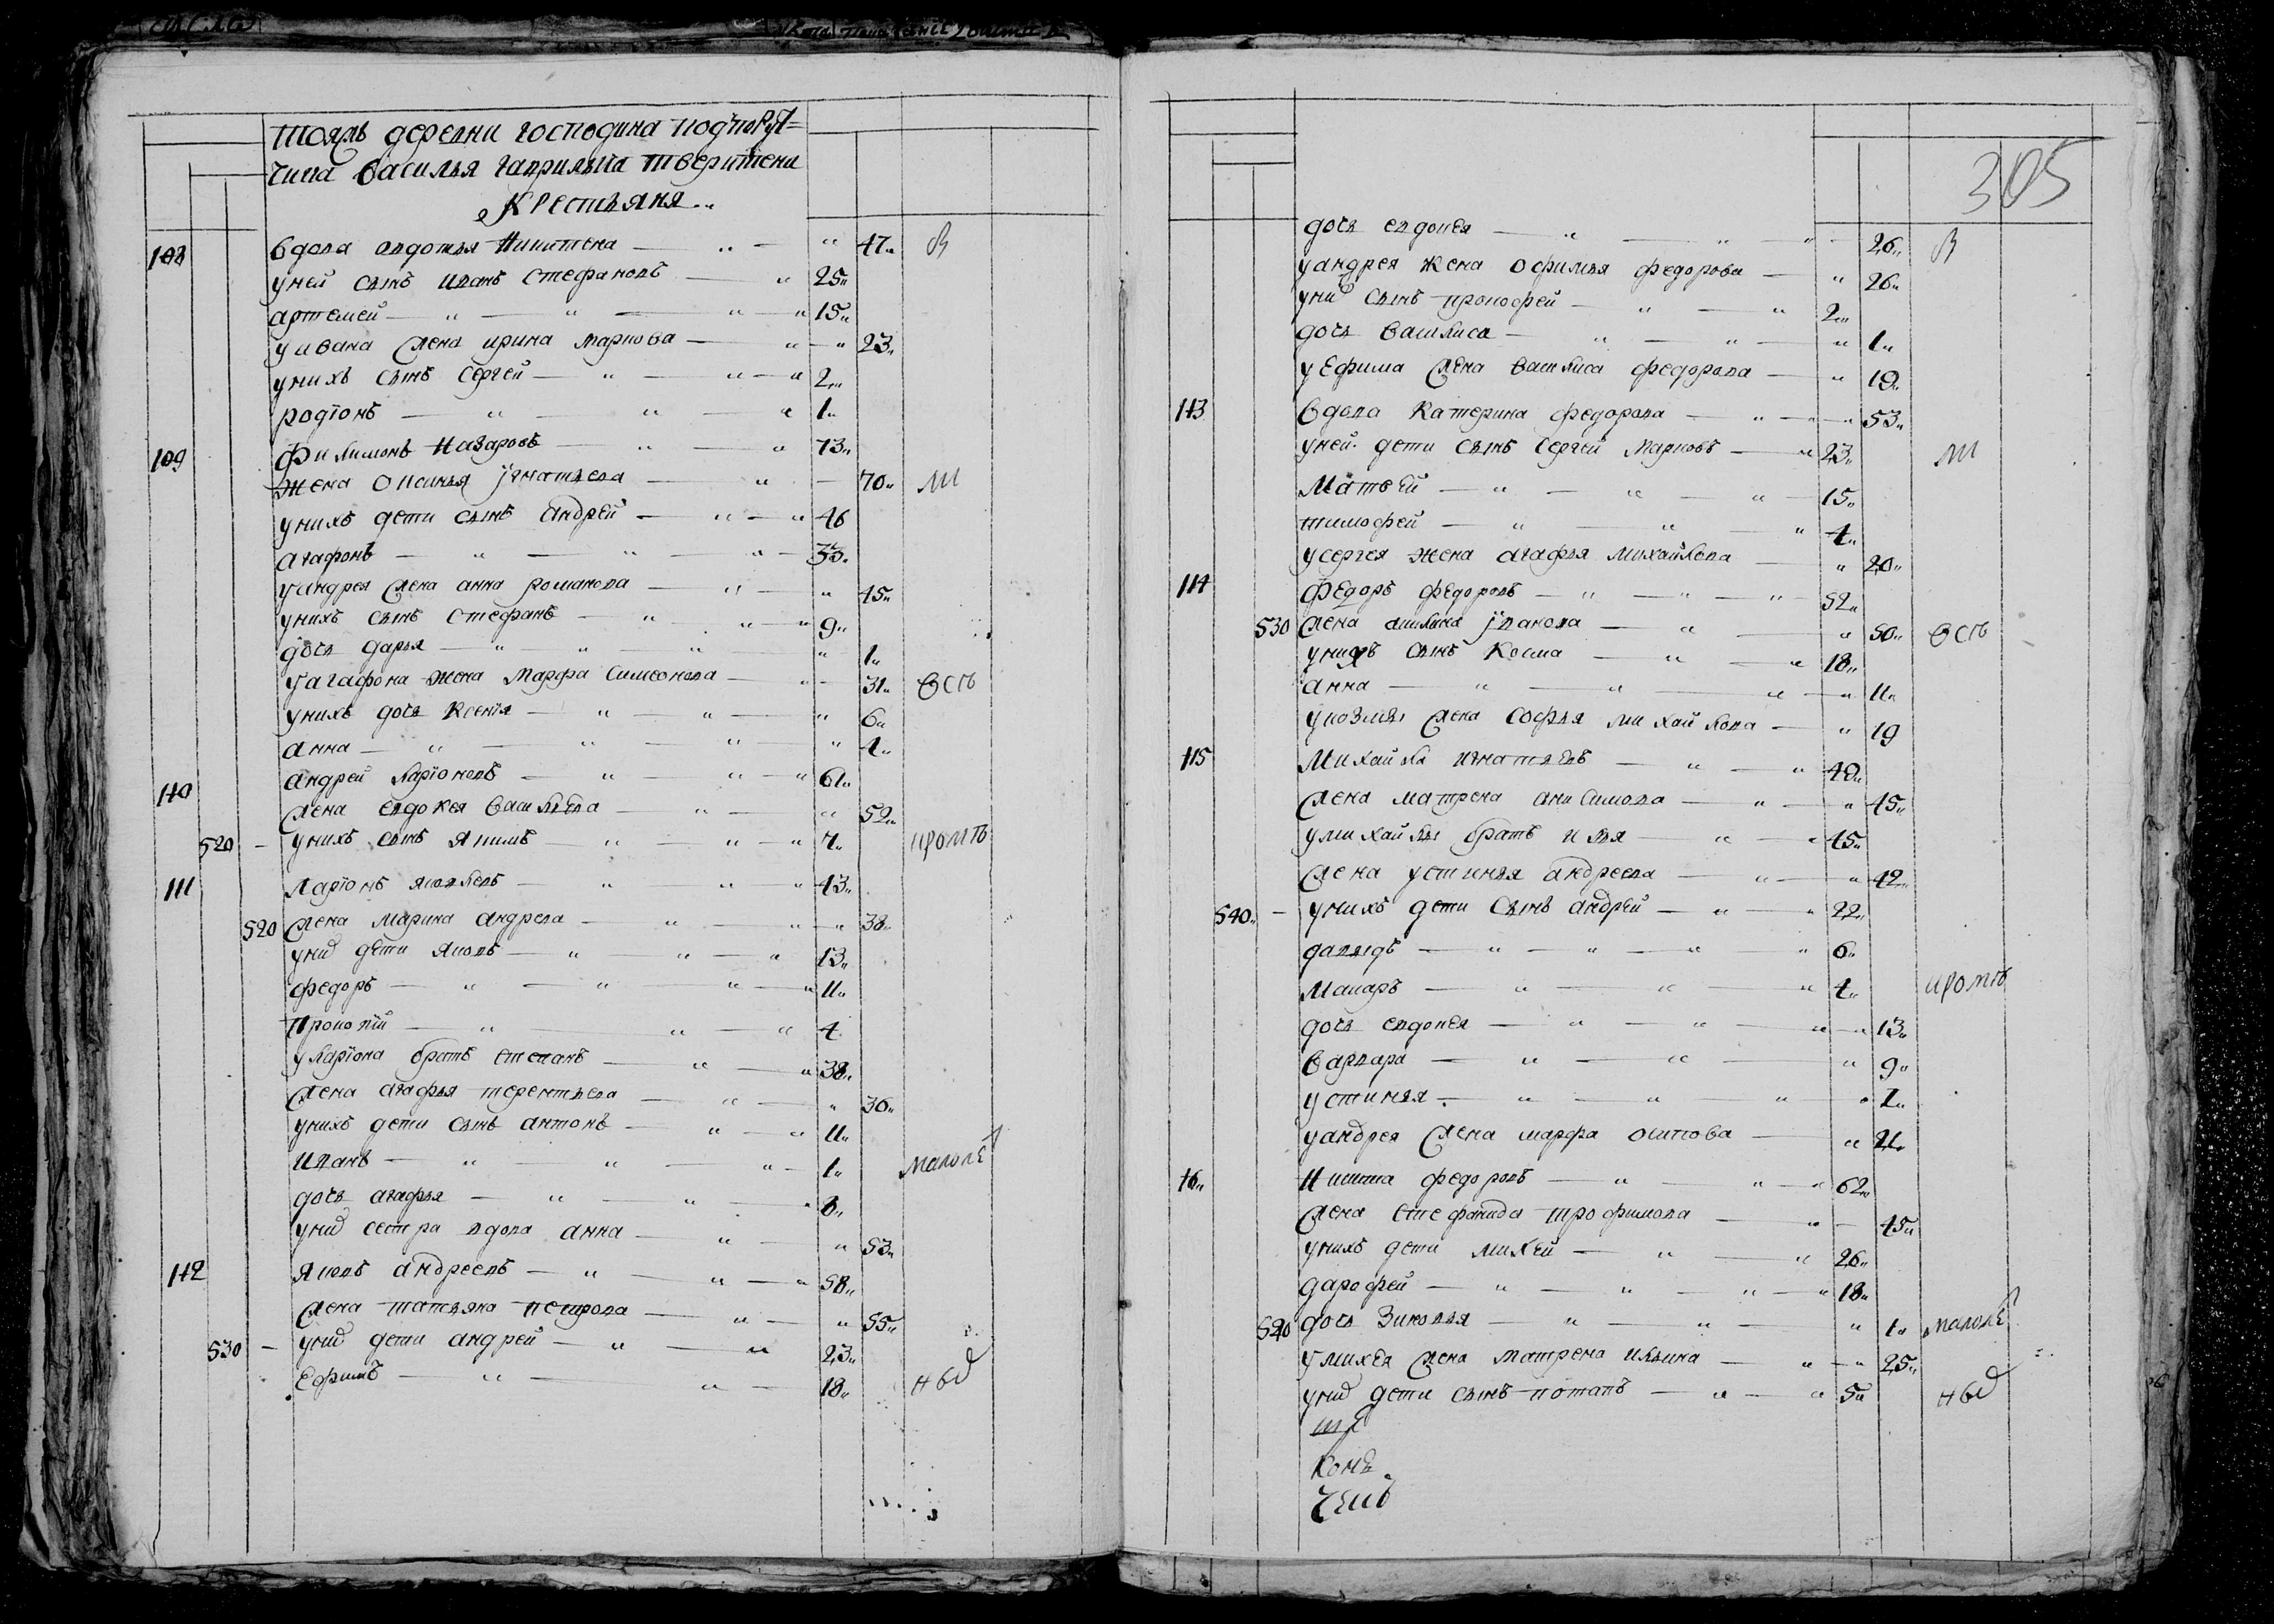 тояжъ деревни господина подпору͡т=
чика василья гаврилыча тверитена
крестьяня
108 вдова авдотья никитена 47 в
у ней сынъ иванъ стефановъ 25
артемей 15
у ивана жена ирина маркова 23
у нихъ сынъ сергей 2
родїонъ 1
109 филимонъ назаровъ 73
жена оксинья їгнатьева 70 ли
у нихъ дети сынъ андрей 46
агафонъ 33
у андрея жена анна романова 45
у нихъ сынъ стефанъ 9
дочь дарья 1
у агафона жена марфа симеонова 31 ѳсть
у нихъ дочь ксенїя 6
анна 1
110 андрей ларїоновъ 61
жена евдокея васильева 52
520 у нихъ сынъ якимъ 7 кромѣ
111 ларїонъ яковлевъ 43
520 жена марина андрева 38
у них дети яковъ 13
федоръ 11
прокопїй 4
у ларїона братъ степанъ 38
жена агафья терентьева 36
у нихъ дети сынъ антонъ 11
иванъ 1 малолѣ
дочь агафья 8
у них сестра вдова анна 53
112 яковъ андреевъ 58
жена татьяна петрова 55
530 у них дети андрей 23
ефимъ 18 нѣ
305
дочь евдокея 26 в
у андрея жена офимья федорова 26
у них сынъ прокофей 2
дочь василиса 1
у ефима жена василиса федорова 19
113 вдова катерина федорова 53
у ней дети сынъ сергей марковъ 23 ли
матвей 15
тимофей 4
у сергея жена агафья михайлова 20
114 федоръ федоровъ 52
530 жена акилина їванова 50 ѳсть
у нихъ сынъ косма 18
анна 11
у козмы жена софья михайлова 19
115 михайла игнатьевъ 49
жена матрена анисимова 45
у михайлы братъ илья 45
жена устинья андреева 42
540 у нихъ дети сынъ андрей 22
давыдъ 6
макаръ 4 кромѣ
дочь евдокея 13
варвара 9
устинья 7
у андрея жена марфа осипова 21
116 никита федоровъ 62
жена стефанида трофимова 45
у нихъ дети михей 26
дарофей 18
520 дочь зиновья 1 малолѣ
у михея жена матрена ильина 25
у них дети сынъ потапъ 5 нѣ